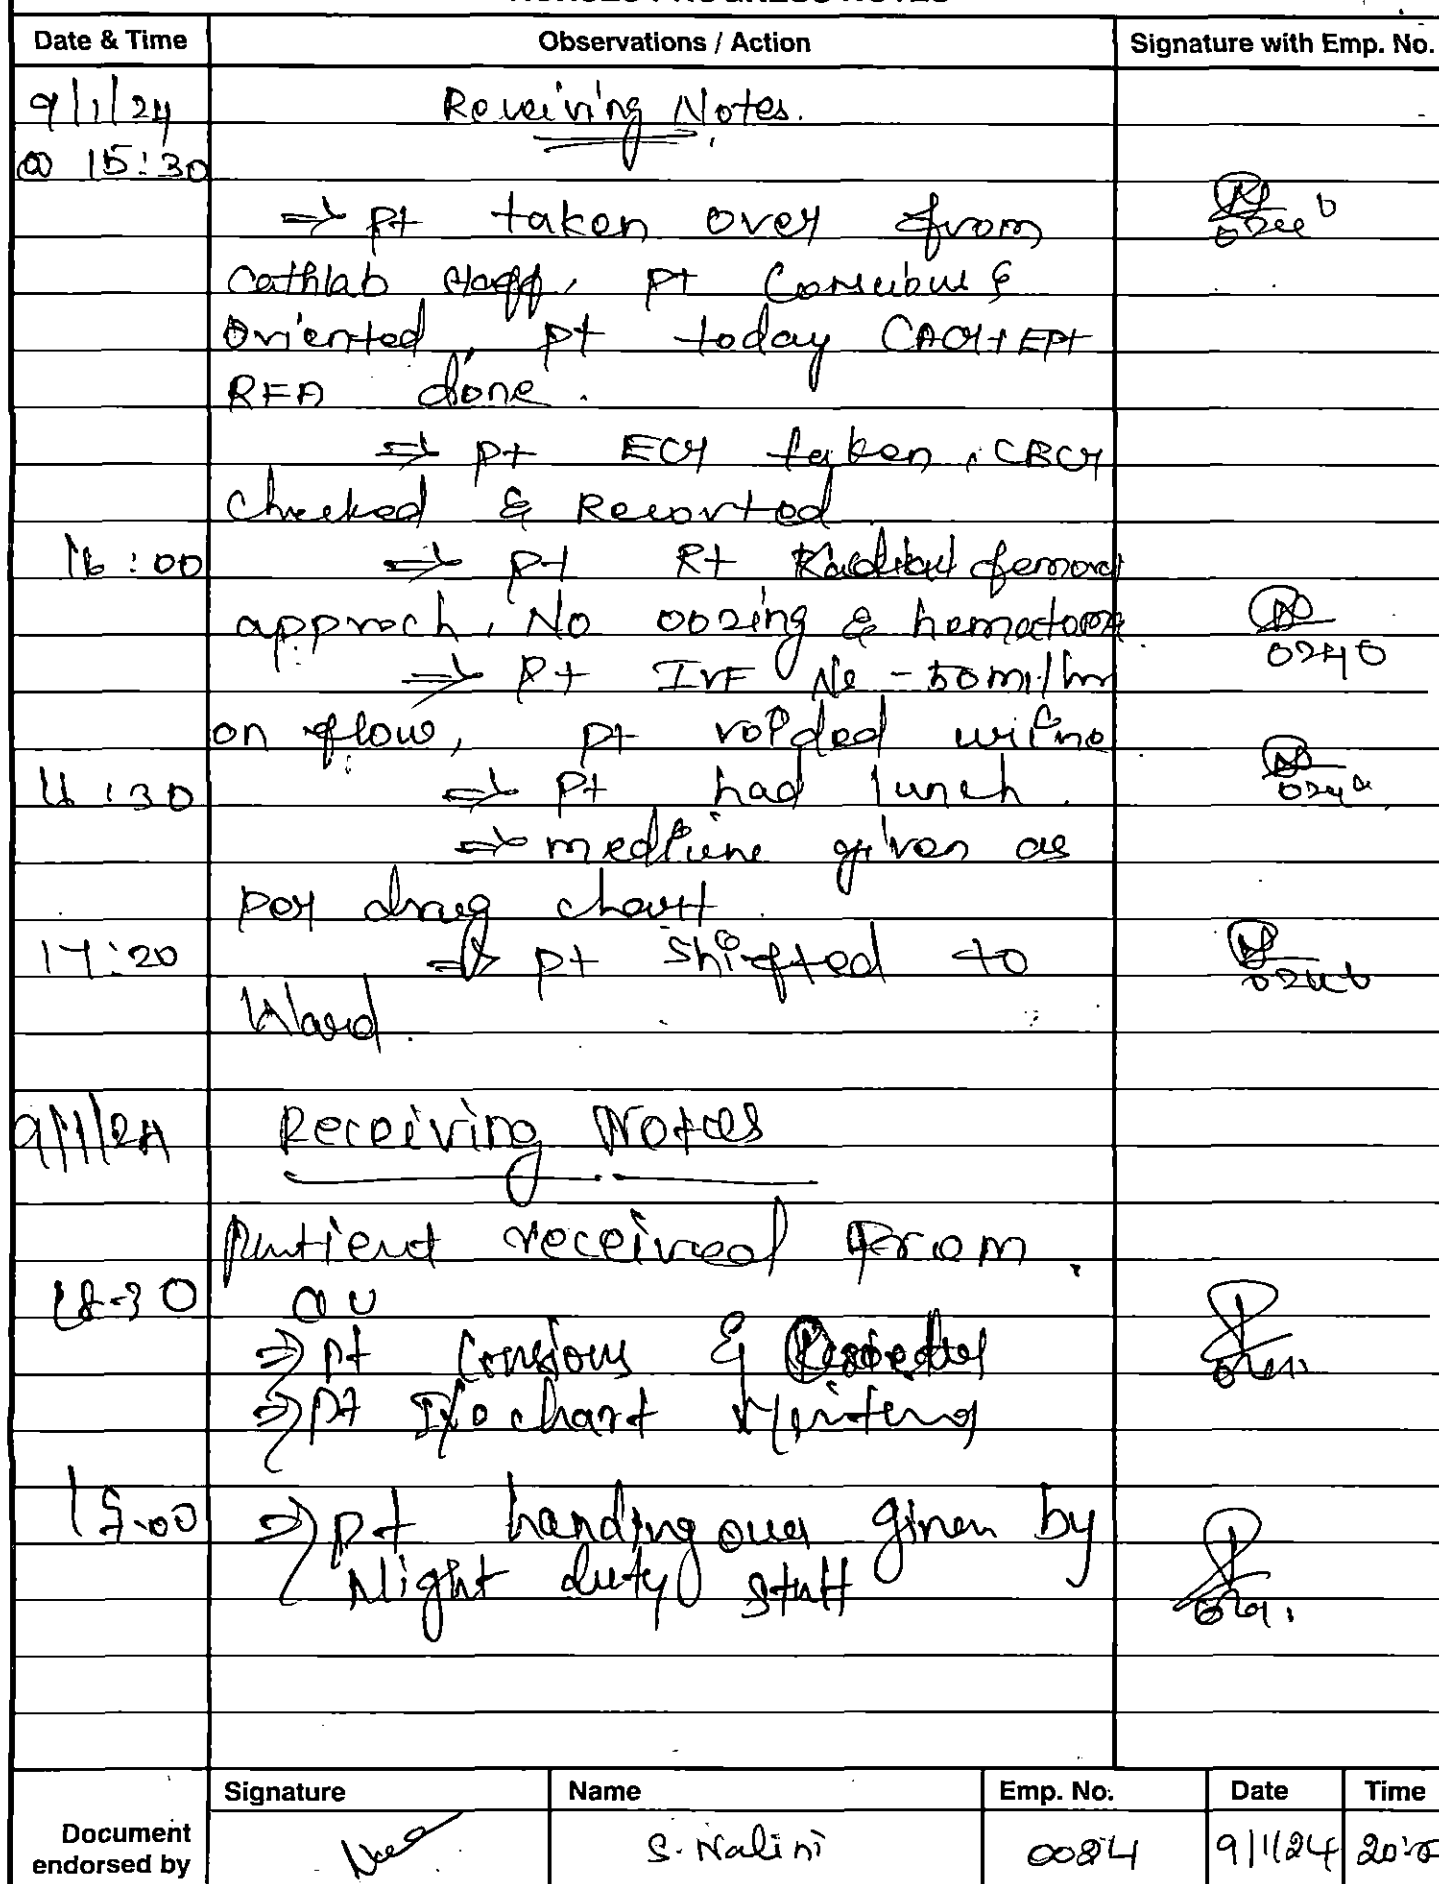 NURSES PROGRESS NOTES
Date & Time Observations / Action Signature with Emp. No.
9/1/24 Receiving Notes.
@ 15:30
⇒ pt taken over from
Cathlab staff, pt Conscious &
Oriented, pt today CAG+EPS+
RFA done.
⇒ pt ECG taken, CBG
checked & Recorted
16:00 ⇒ pt Rt femoral
approch, No oozing & hematoma 0240
⇒ pt IVF NS - 50ml/hr
on flow, pt voided urine
16:30 ⇒ pt had lunch.
⇒ medicine given as
per drug chart.
17:20 ⇒ pt shifted to
Ward.
9/1/24 Receiving Notes
Patient received from
18-30
⇒ pt Consious &
⇒ pt I/O chart
⇒ pt handing over given by
Night duty staff
Signature Name Emp. No. Date Time
Document
endorsed by S. Nalini 0084 9/1/24